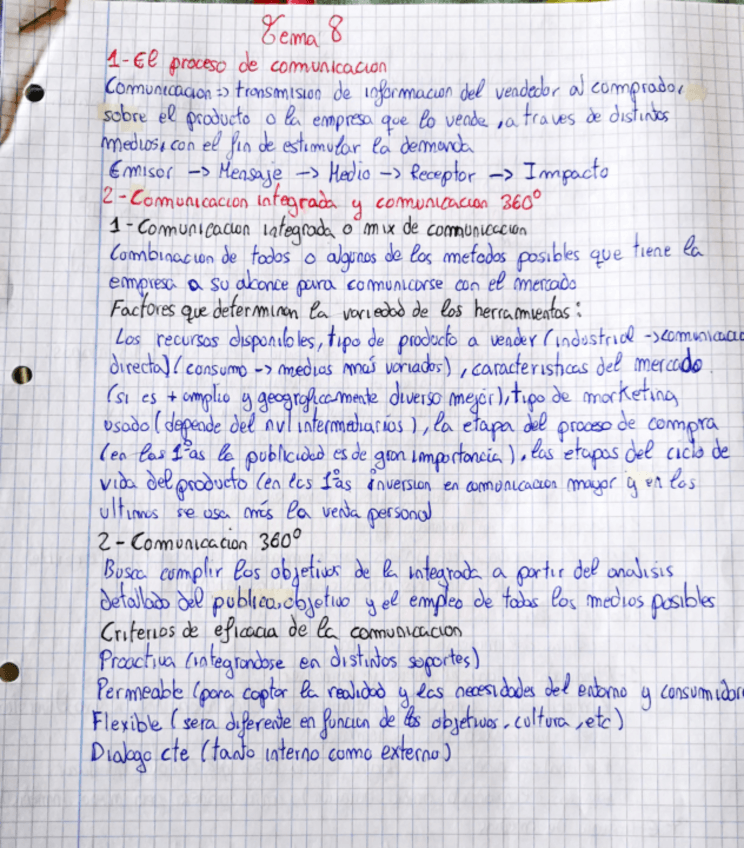 Tema 8
1-El proceso de comunicacion
Comunicacion => transmision de informacion del vendedor al comprador
sobre el producto o la empresa que lo vende, a traves de distintos
medios, con el fin de estimular la demanda
Emisor -> Mensaje -> Medio -> Receptor -> Impacto
2-Comunicacion integrada y comunicacion 360º
1-Comunicacion integrada o mix de comunicacion
Combinacion de todos o algunos de los metodos posibles que tiene la
empresa a su alcance para comunicarse con el mercado
Factores que determinan la variedad de los herramientas:
Los recursos disponibles, tipo de producto a vender (industrial ->comunicacio
directa) (consumo -> medios más variados), caracteristicas del mercado
(si es + amplio y geograficamente diverso mejor), tipo de marketing
usado (depende del nvl intermediarios), la etapa del proceso de compra
(en las 1ªas la publicidad es de gran importancia), las etapas del ciclo de
vida del producto (en las 1ªas inversion en comunicacion mayor y en las
ultimas se usa más la venta personal
2-Comunicacion 360º
Busca complir los objetivos de la integrada a partir del analisis
detallado del publico objetivo y el empleo de todos los medios posibles
Criterios de eficacia de la comunicacion
Proactiva (integrandose en distintos soportes)
Permeable (para captar la realidad y las necesidades del entorno y consumidore
Flexible (sera diferente en funcion de los objetivos, cultura, etc)
Dialogo cte (tanto interno como externo)